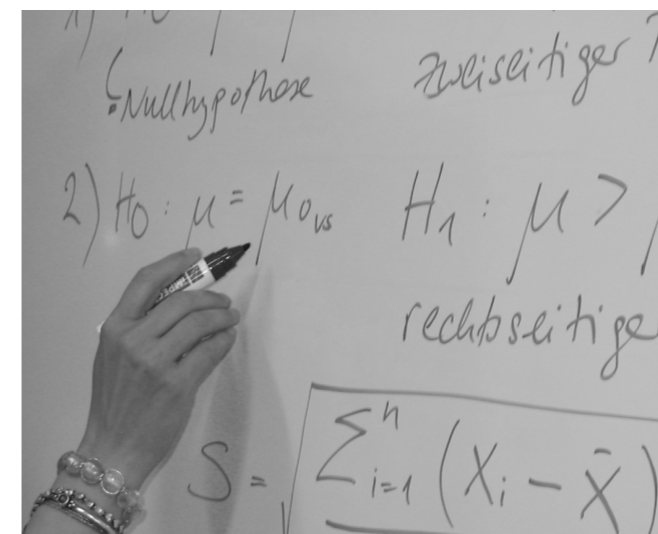 1) H0
Nullhypothese zweiseitiger
2) H0 : μ = μ0 vs H1 : μ >
rechtsseitige
S = √ ∑ n i=1 (Xi − X̄)